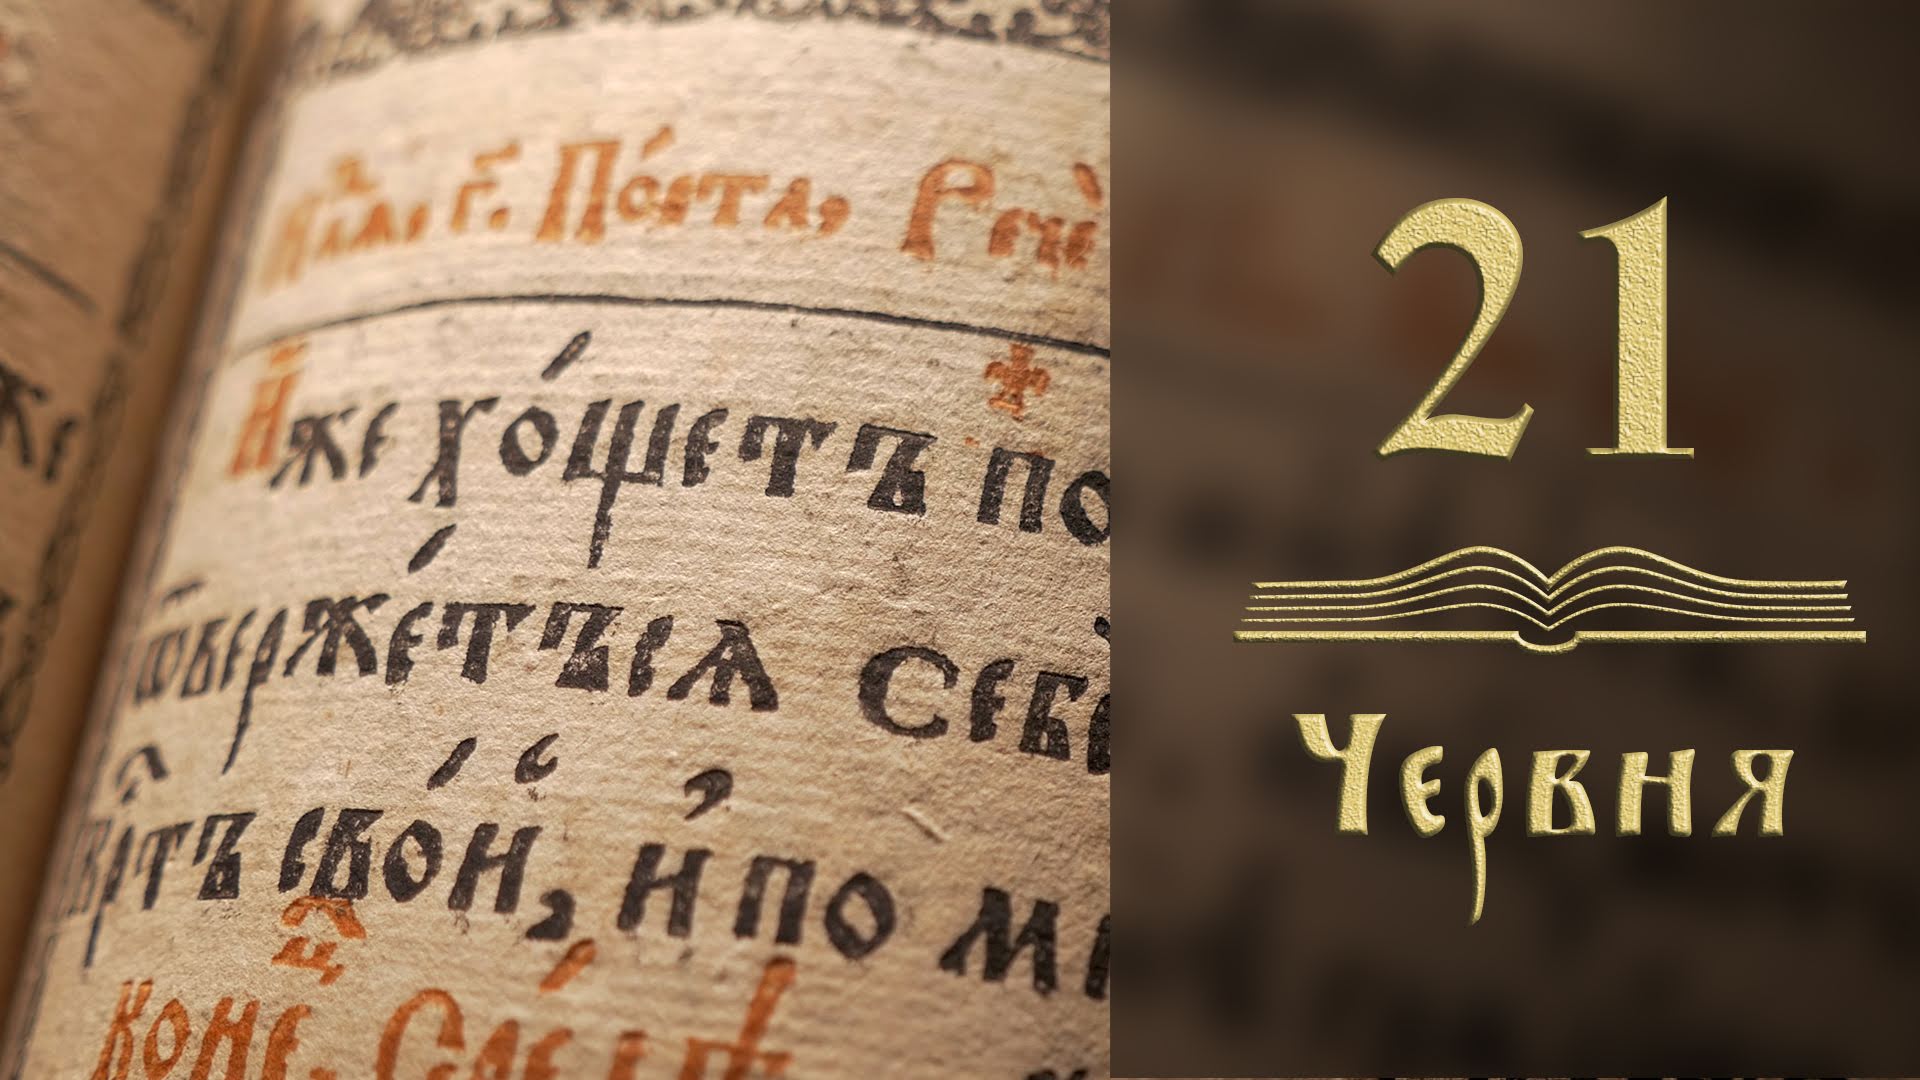 г҃. Поста, Рече
Иже хо́щетъ по
ѿве́ржетъсѧ себе
крⷭ҇тъ сво́й, и҆ по м
Коне. Следѣ
21
Червня